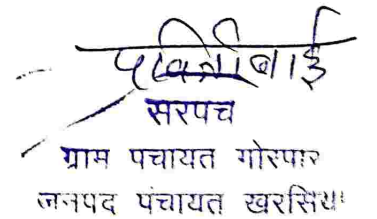 सरपच
ग्राम पचायत गोरपार
जनपद पंचायत खरसिया